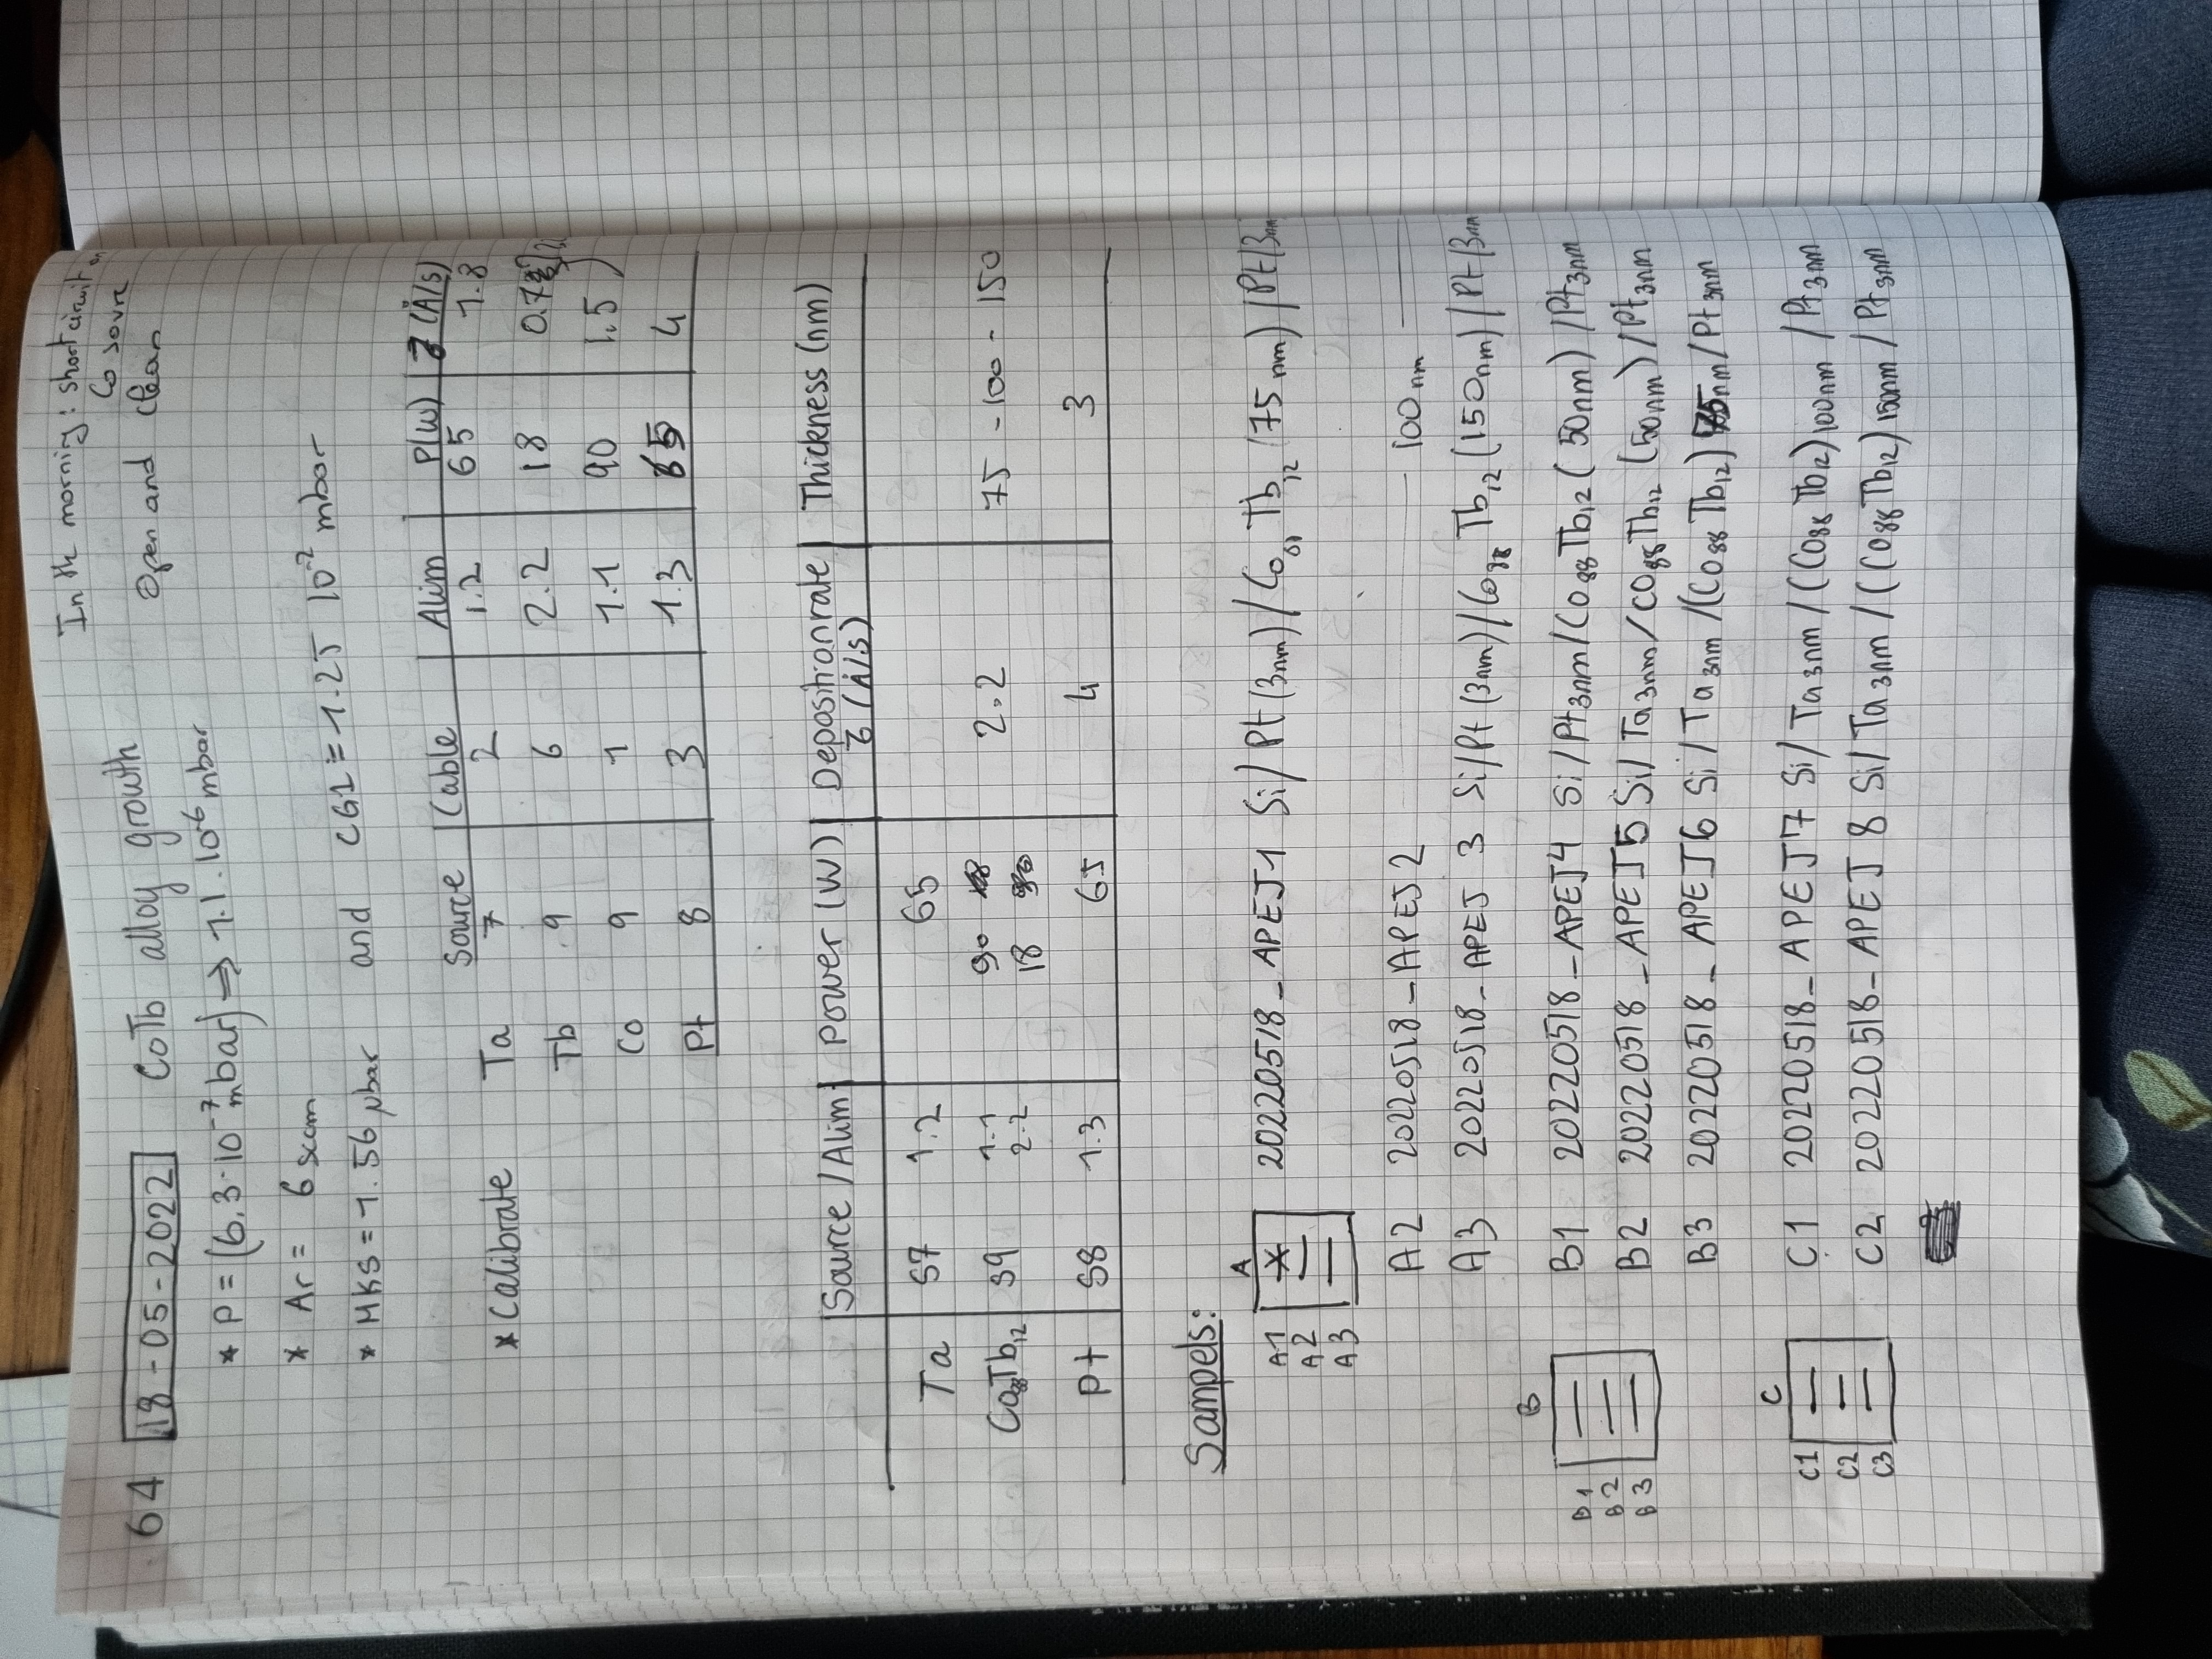 In the morning: short circuit on
Co sourc
Open and clean
64 18-05-2022 CoTb alloy growth
* P = (6.3·10⁻⁷ mbar) ⇒ 1.1·10⁻⁶ mbar
* Ar = 6 sccm
* MKS = 1.56 µbar and CG1 = 1.25 10⁻² mbar
Source Cable Alim P(W) (Å/s)
* Calibrate Ta 7 2 1.2 65 1.8
Tb 9 6 2.2 18 0.7
Co 9 1 1.1 90 1.5
Pt 8 3 1.3 65 4
Source / Alim Power (W) Deposition rate Thickness (nm)
(Å/s)
Ta S7 1.2 65
Co₈₈Tb₁₂ S9 1.1 90 2.2 75 - 100 - 150
2.2 18
Pt S8 1.3 65 4 3
Sampels:
A
A1 X 20220518_APEJ1 Si/Pt(3nm)/Co Tb₁₂ (75nm)/Pt(3nm
A2
A3
A2 20220518_APEJ2 — 100nm —
A3 20220518_APEJ 3 Si/Pt(3nm)/Co₈₈Tb₁₂(150nm)/Pt(3nm
B
B1 B1 20220518_APEJ4 Si/Pt3nm/Co₈₈Tb₁₂(50nm)/Pt3nm
B2 B2 20220518_APEJ5 Si/Ta3nm/Co₈₈Tb₁₂(50nm)/Pt3nm
B3
B3 20220518_APEJ6 Si/Ta3nm/(Co₈₈Tb₁₂)75nm/Pt3nm
C
C1 C1 20220518_APEJ7 Si/Ta3nm/(Co₈₈Tb₁₂)100nm/Pt3nm
C2 C2 20220518_APEJ8 Si/Ta3nm/(Co₈₈Tb₁₂)150nm/Pt3nm
C3